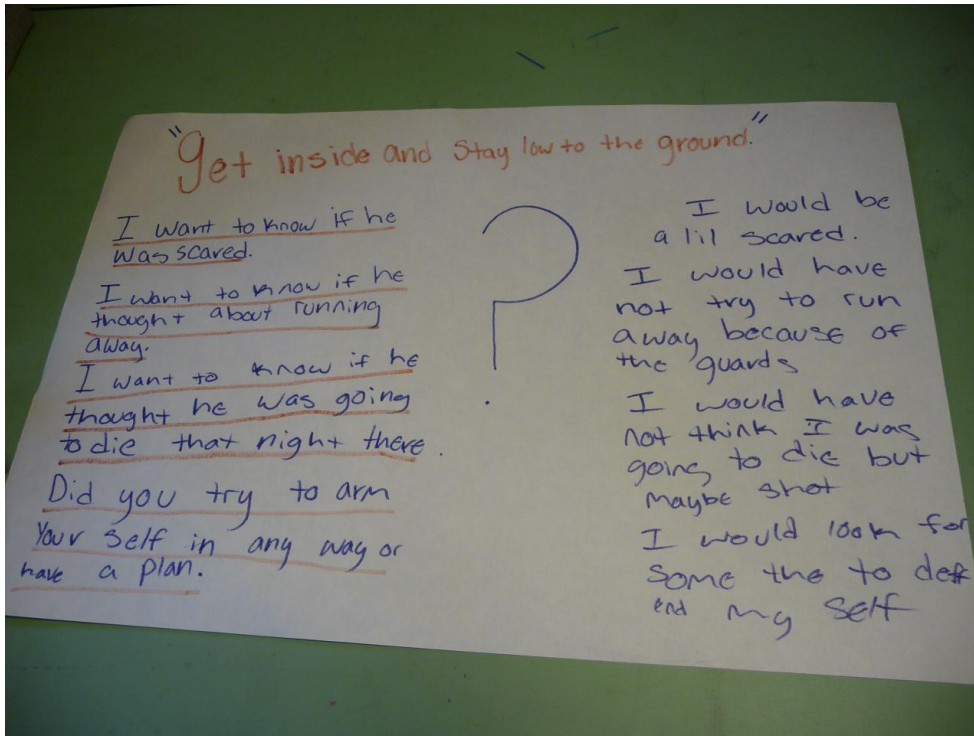 "Get inside and Stay low to the ground."
I want to know if he
was scared.
I want to know if he
thought about running
away.
I want to know if he
thought he was going
to die that night there.
Did you try to arm
Your self in any way or
have a plan.
?
I would be
a lil scared.
I would have
not try to run
away because of
the guards
I would have
not think I was
going to die but
maybe shot
I would look for
some the to deff
end my self